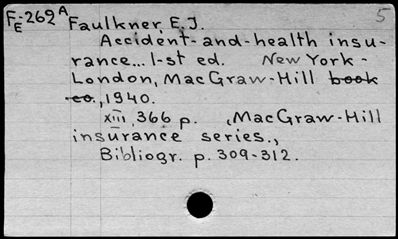 F-262 A Faulkner, E.J. 5
E
Accident-and-health insu-
rance... 1-st ed. New York-
London, MacGraw-Hill book
co., 1940.
xiii, 366 p. (MacGraw-Hill
insurance series.,
Bibliogr. p. 309-312.